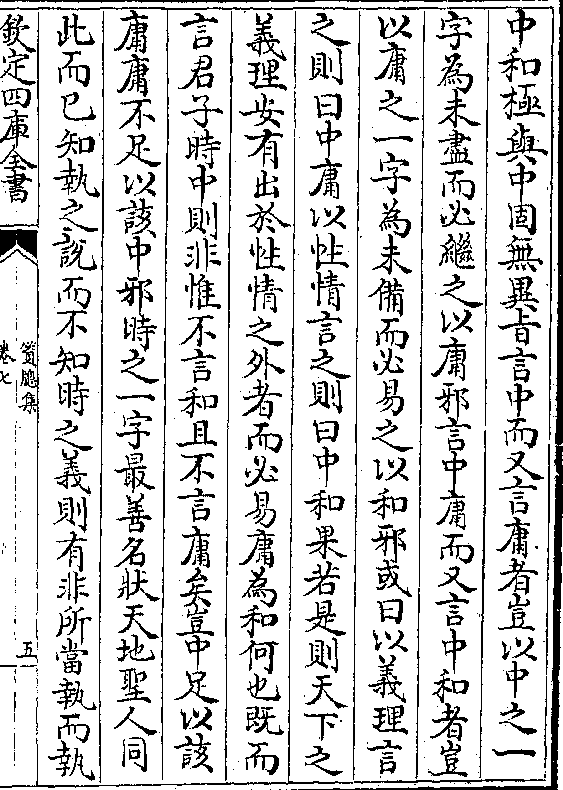 中和極與中固無異㫖言中而又言庸者豈以中之一
字為未盡而必繼之以庸邪言中庸而又言中和者豈
以庸之一字為未備而必易之以和邪或曰以義理言
之則曰中庸以性情言之則曰中和果若是則天下之
義理安有出於性情之外者而必易庸為和何也既而
言君子時中則非惟不言和且不言庸矣豈中足以該
庸庸不足以該中邪時之一字最善名狀天地聖人同
此而已知執之說而不知時之義則有非所當執而執
欽定四庫全書
篔牕集
卷七
五